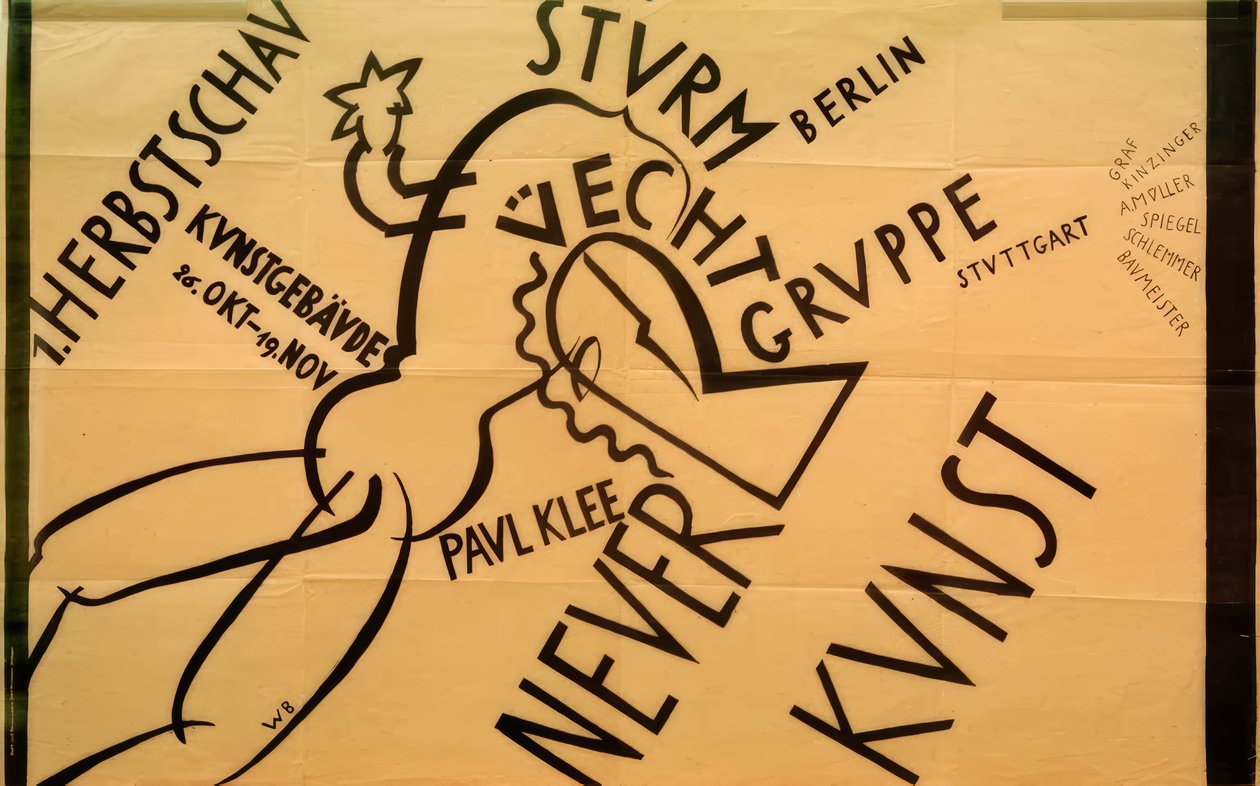 1. HERBSTSCHAV
KVNSTGEBÄVDE
26. OKT–19. NOV
STVRM
BERLIN
ÜECHT
GRVPPE
STVTTGART
GRAF
KINZINGER
A. MÜLLER
SPIEGEL
SCHLEMMER
BAVMEISTER
PAVL KLEE
NEVER
KVNST
WB